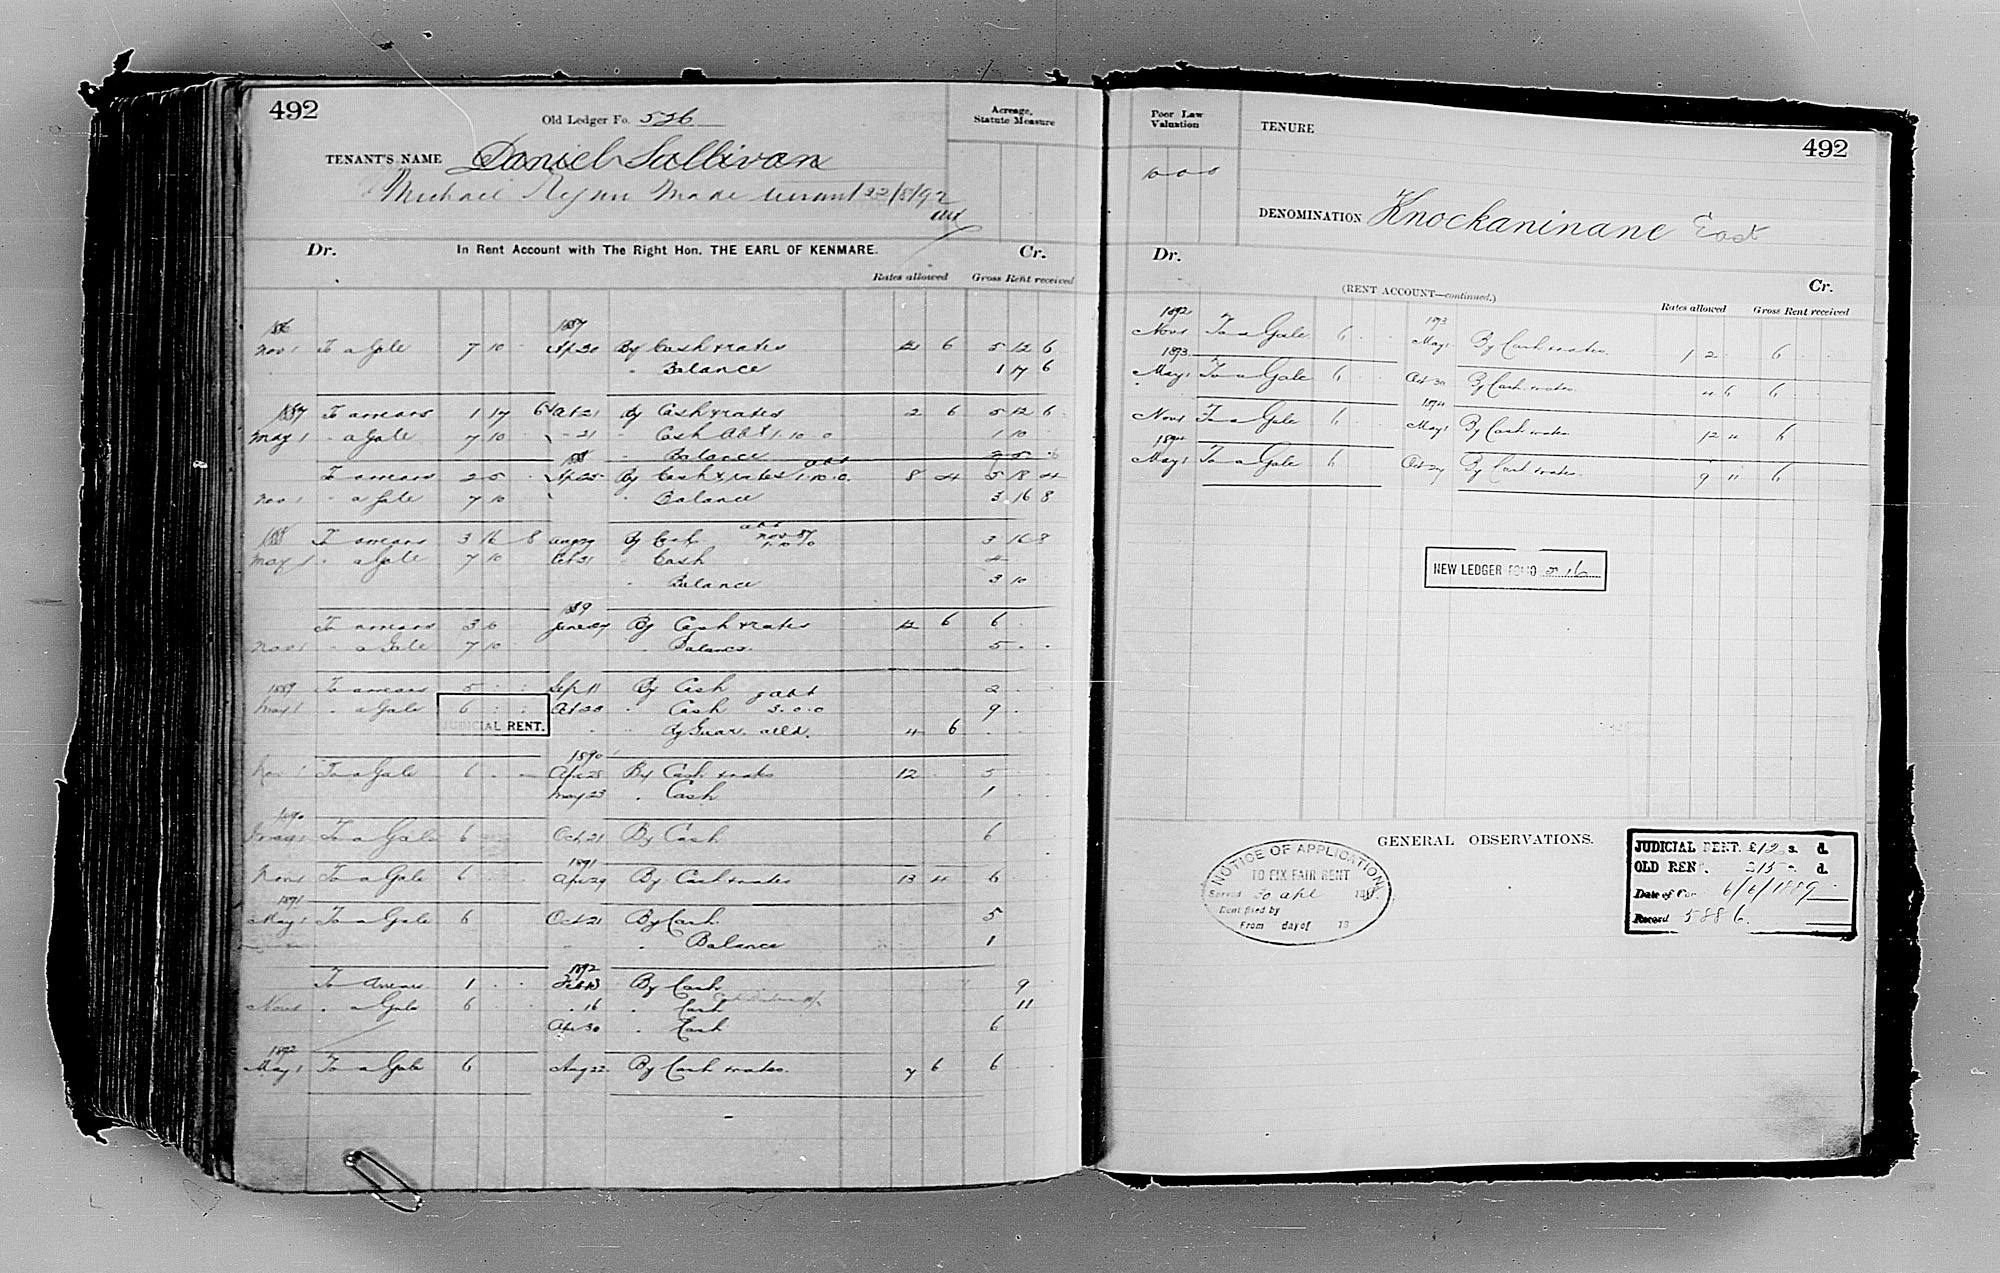 492
Old Ledger Fo. 526
Acreage, Statute Measure
TENANT'S NAME Daniel Sullivan
Michael made tenant 22/8/92
Dr. In Rent Account with The Right Hon. THE EARL OF KENMARE. Cr.
Rates allowed Gross Rent received
1886 1887
Nov 1 To a Gale 7 10 Ap 20 By Cash & rates 12 6 5 12 6
" Balance 1 17 6
1887 To arrears 1 17 6 Oct 21 By Cash & rates 2 6 5 12 6
May 1 " a Gale 7 10 " 21 " Cash Abt 1.10.0 1 10
" Balance 2 5
1888
To arrears 2 5 Ap 25 By Cash & rates abt 1.10.0 8 4 5 18 4
Nov 1 " a Gale 7 10 " Balance 3 16 8
1888 To arrears 3 16 8 Aug 29 By Cash abt Nov 87 1.10.0 3 16 8
May 1 " a Gale 7 10 Oct 31 " Cash 4
" Balance 3 10
1889
To arrears 3 10 June 27 By Cash & rates 12 6 6
Nov 1 " a Gale 7 10 " Balance 5
1889 To arrears 5 Sep 11 By Cash 2
May 1 " a Gale 6 Oct 28 " Cash abt 3.0.0 9
JUDICIAL RENT.
" By alld. 4 6
1890
Nov 1 To a Gale 6 Apr 28 By Cash & rates 12 5
May 23 " Cash 1
1890
May 1 To a Gale 6 Oct 21 By Cash 6
1891
Nov 1 To a Gale 6 Apr 29 By Cash & rates 13 4 6
1891
May 1 To a Gale 6 Oct 21 By Cash 5
" Balance 1
1892
To Arrears 1 Feb 13 By Cash 9
Nov 1 " a Gale 6 " 16 " Cash 11
Apr 30 " Cash 6
1892
May 1 To a Gale 6 Aug 22 By Cash & rates. 7 6 6
Poor Law Valuation
TENURE
492
DENOMINATION Knockaninane East
Dr. Cr.
(RENT ACCOUNT—continued.)
Rates allowed Gross Rent received
1892 1893
Nov 1 To a Gale 6 May 1 By Cash & rates. 12 6
1893
May 1 To a Gale 6 Oct 30 By Cash & rates. 4 6 6
1894
Nov 1 To a Gale 6 May 1 By Cash & rates 12 4 6
1894
May 1 To a Gale 6 Oct 29 By Cash & rates. 9 11 6
NEW LEDGER FOLIO
GENERAL OBSERVATIONS.
NOTICE OF APPLICATION
TO FIX FAIR RENT
Served 30 Apl 188
Rent fixed by
From day of 18
JUDICIAL RENT. £12 s. d.
OLD RENT. £15 d.
Date of 6/6/1889
Record 5886.